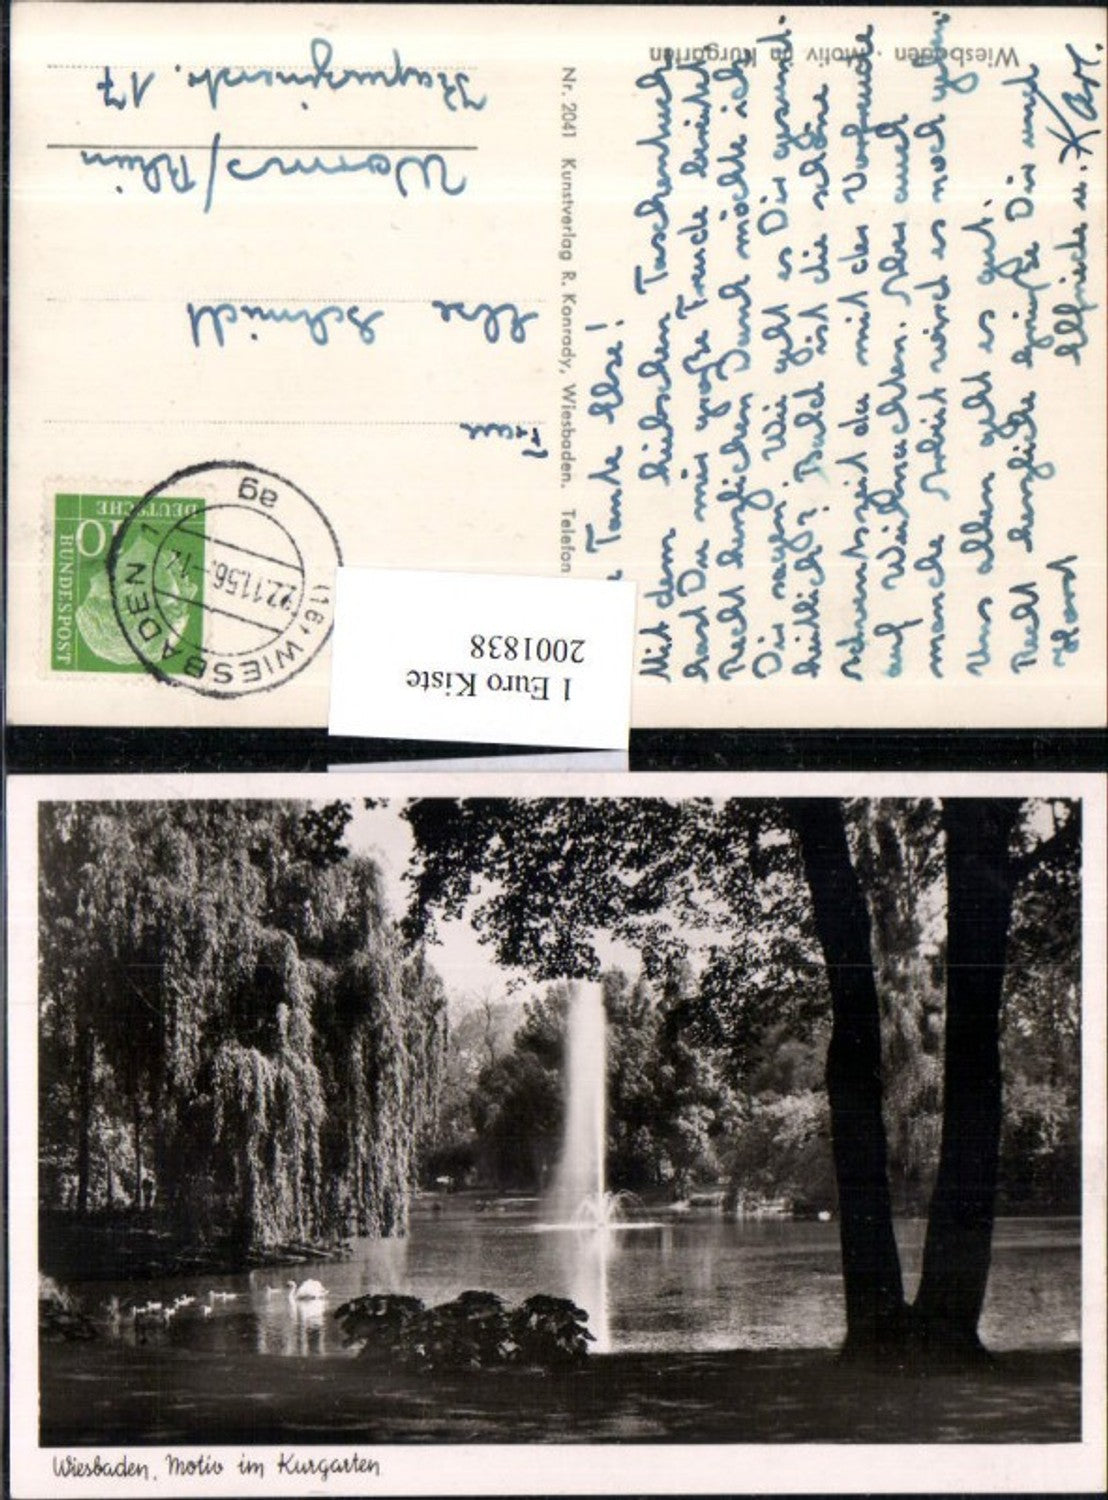 Wiesbaden · Motiv im Kurgarten
Tante Else!
Mit dem hübschen Taschentuch
hast Du mir große Freude bereitet
Recht herzlichen Dank möchte ich
Dir sagen. Wie geht es Dir gesund-
heitlich? Bald ist die schöne
Adventszeit da mit der Vorfreude
auf Weihnachten. Aber auch
manche Arbeit wird es noch geben.
Uns allen geht es gut.
Recht herzliche Grüße Dir und
Horst
Elfriede u. Karl.
Nr. 2041 Kunstverlag R. Konrady, Wiesbaden. Telefon
Frau
Else Schmidt
Worms/Rhein
Kapuzinerstr. 17
DEUTSCHE
BUNDESPOST
10
(16) WIESBADEN 1
22.11.56.-1
ag
1 Euro Kiste
2001838
Wiesbaden, Motiv im Kurgarten